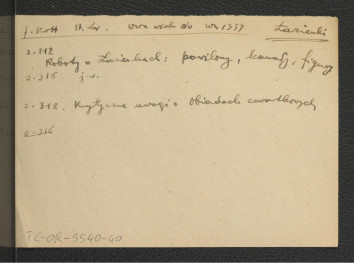 J. Kott St. Aug. wa 1957 Łazienki
s. 112
Roboty w Łazienkach: pawilony, kanały, figury
s. 215 j.w.
s. 312. Krytyczne uwagi o Obiadach czwartkowych
s. 216
TG-OR-5540-40